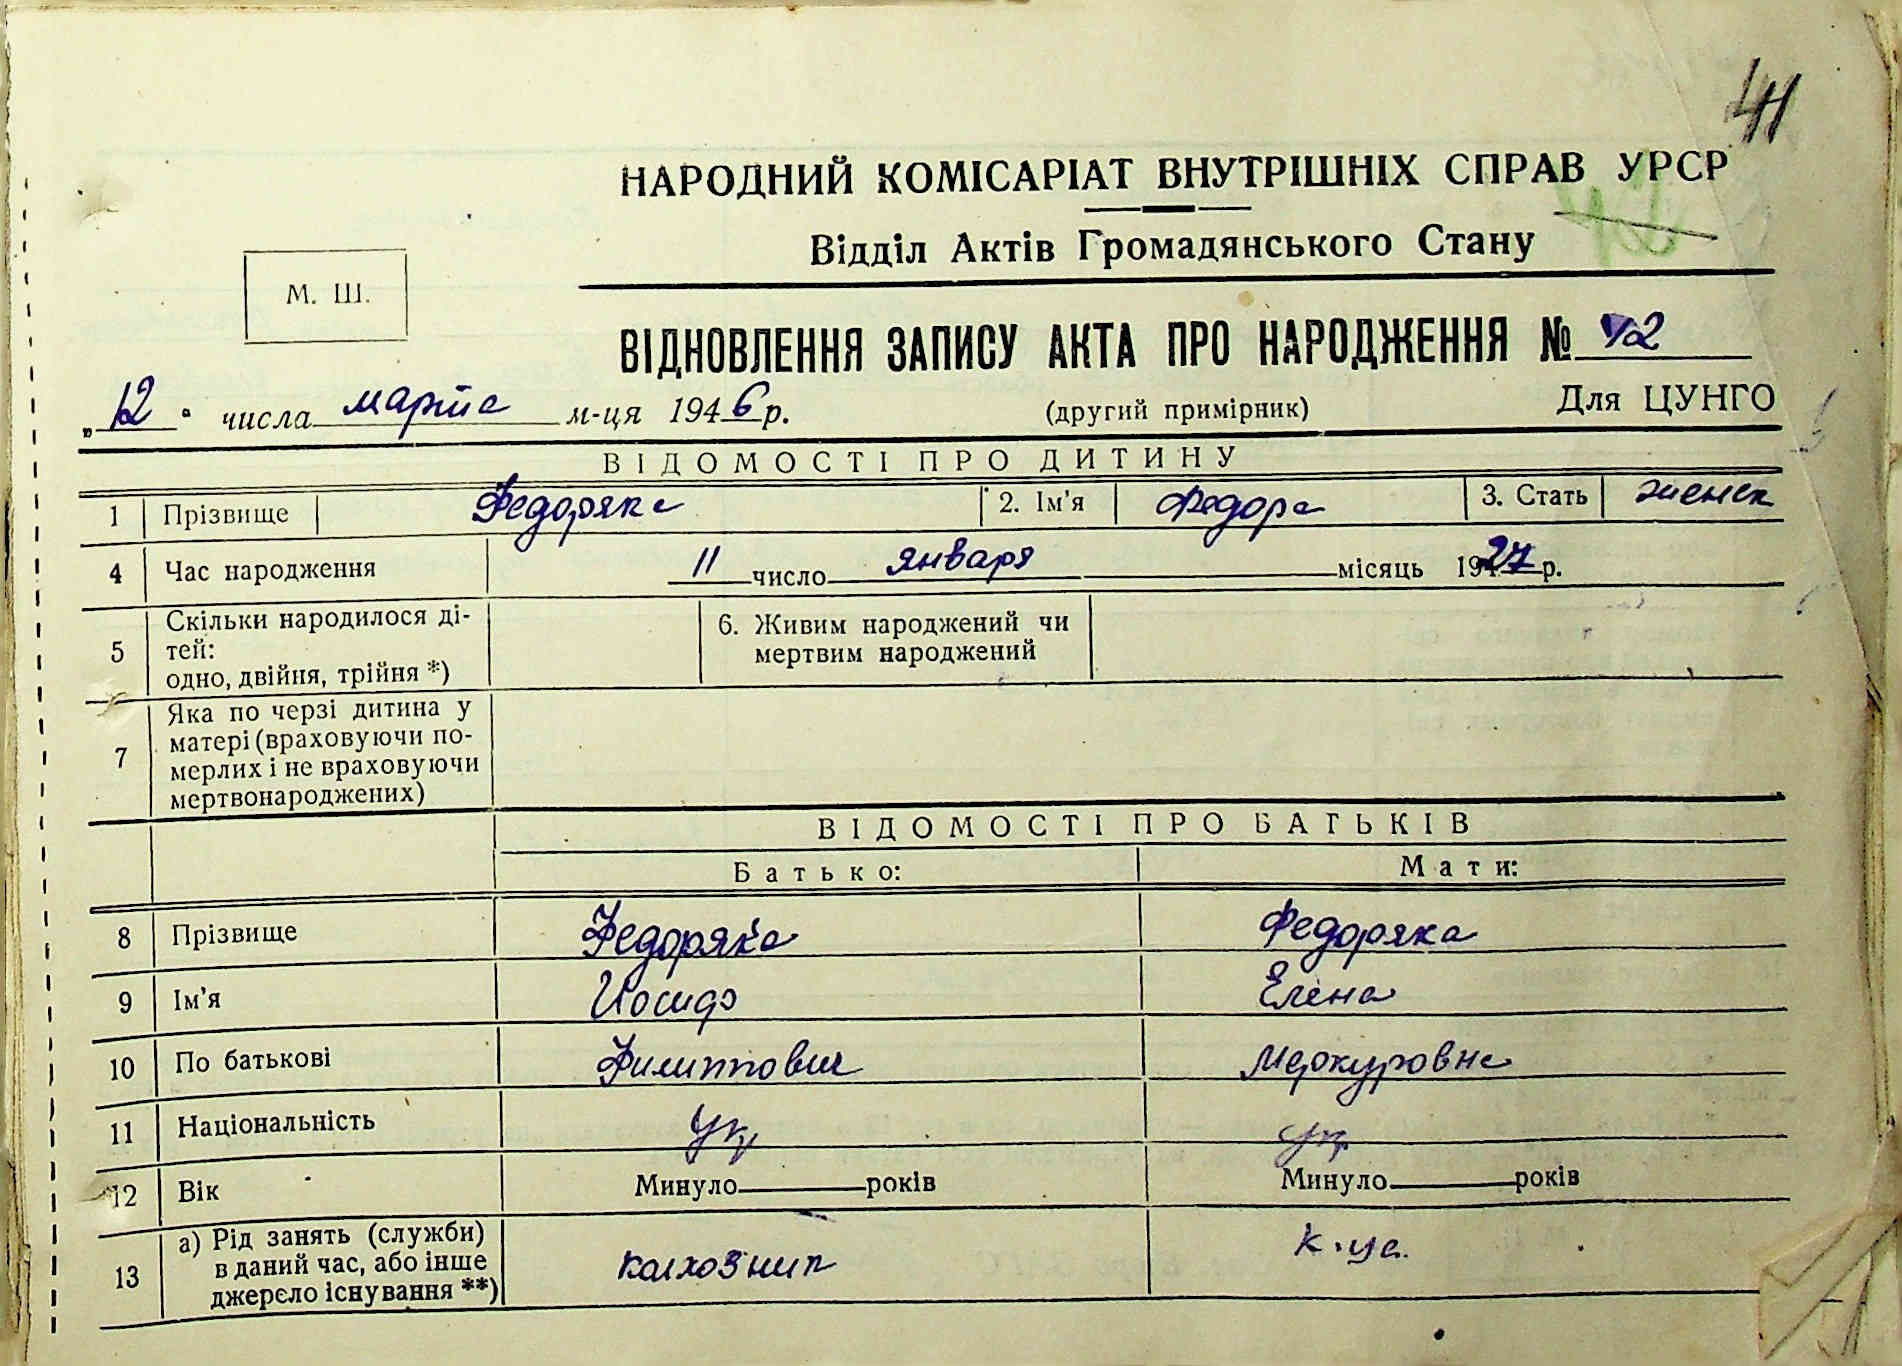 41
НАРОДНИЙ КОМІСАРІАТ ВНУТРІШНІХ СПРАВ УРСР
Відділ Актів Громадянського Стану
М. Ш.
ВІДНОВЛЕННЯ ЗАПИСУ АКТА ПРО НАРОДЖЕННЯ № 42
„12" числа марта м-ця 1946 р. (другий примірник) Для ЦУНГО
ВІДОМОСТІ ПРО ДИТИНУ
1 Прізвище Федоряка 2. Ім'я Федора 3. Стать женск
4 Час народження 11 число января місяць 1927 р.
5 Скільки народилося ді-
тей:
одно, двійня, трійня *)
6. Живим народжений чи
мертвим народжений
7 Яка по черзі дитина у
матері (враховуючи по-
мерлих і не враховуючи
мертвонароджених)
ВІДОМОСТІ ПРО БАТЬКІВ
Батько: Мати:
8 Прізвище Федоряка Федоряка
9 Ім'я Иосиф Елена
10 По батькові Филиппович Меркуровна
11 Національність Укр Укр
12 Вік Минуло років Минуло років
13 а) Рід занять (служби)
в даний час, або інше
джерело існування **)
колхозник к-ца.